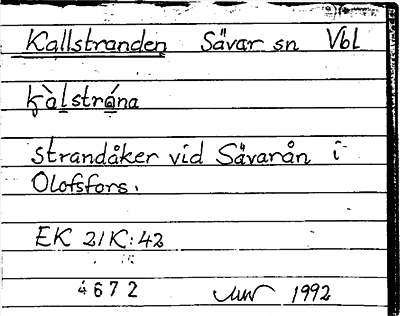 Kallstranden Sävar sn Vbl
kàlstrána
strandåker vid Sävarån i
Olofsfors.
EK 21K:42
4672 1992